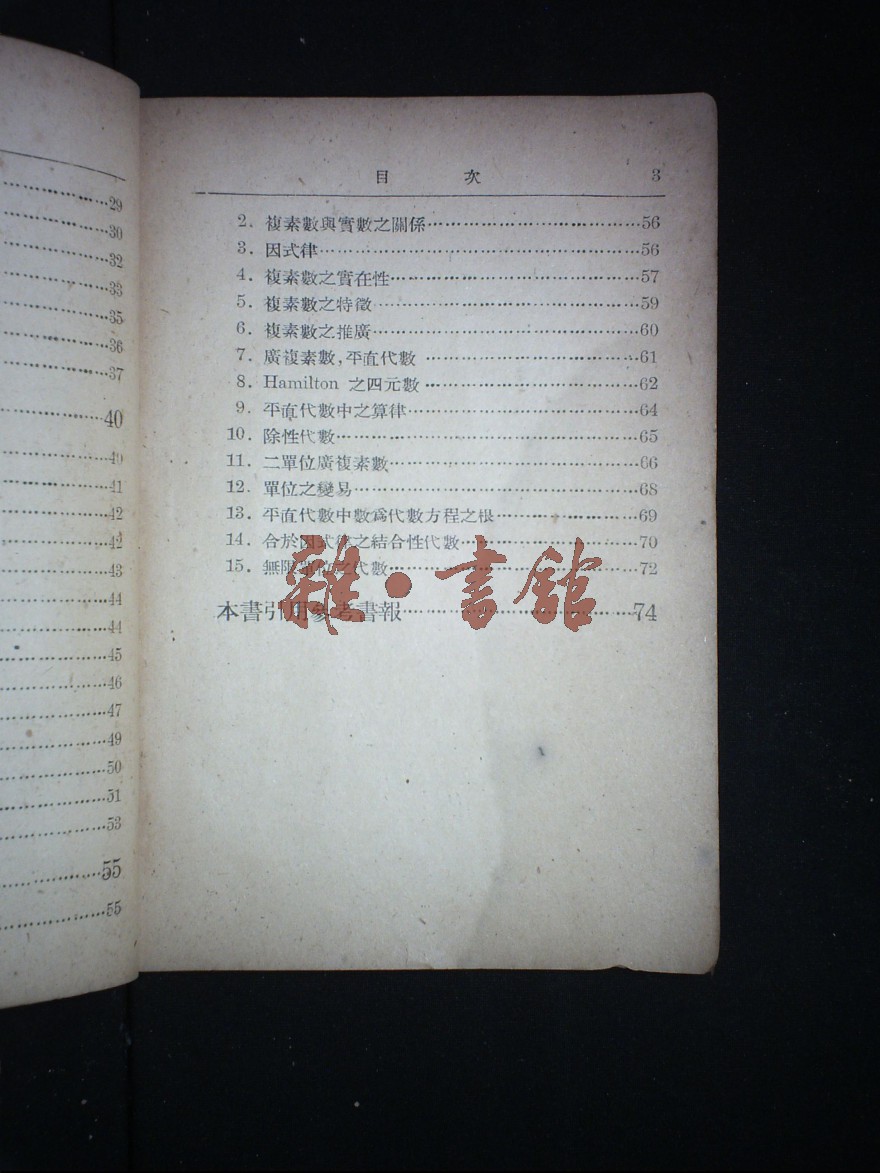 29
30
32
33
35
36
37
40
40
41
42
42
43
44
44
45
46
47
49
50
51
53
55
55
目 次 3
2. 複素數與實數之關係 56
3. 因式律 56
4. 複素數之實在性 57
5. 複素數之特徵 59
6. 複素數之推廣 60
7. 廣複素數,平直代數 61
8. Hamilton 之四元數 62
9. 平直代數中之算律 64
10. 除性代數 65
11. 二單位廣複素數 66
12. 單位之變易 68
13. 平直代數中數爲代數方程之根 69
14. 合於因式律之結合性代數 70
15. 無限單位之代數 72
本書引用參考書報 74
雜·書館